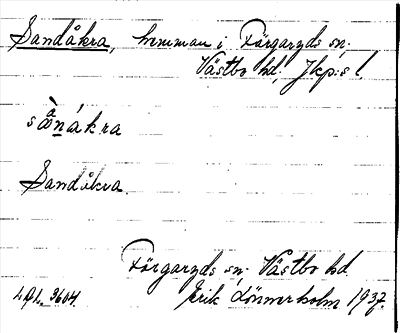 Sandåkra, hemman i Färgaryds sn.
Västbo hd, Jkp:s l.
sànákra
Sandåkra.
Färgaryds sn. Västbo hd
L.A.L. 3604. Erik Lönnerholm 1937.